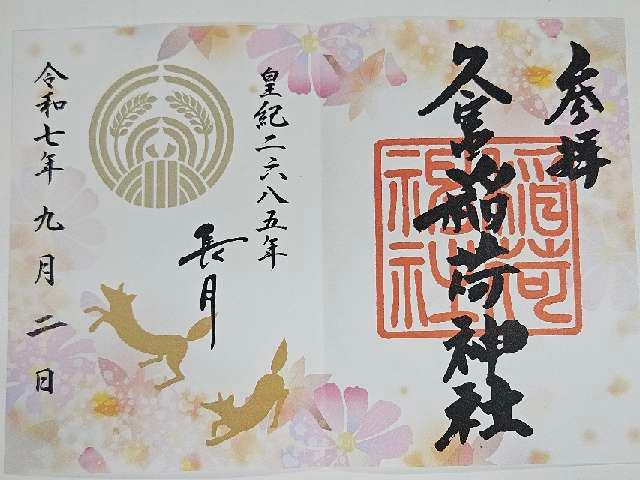 参拝
久富稲荷神社
稲荷
神社
皇紀二六八五年
長月
令和七年九月二日